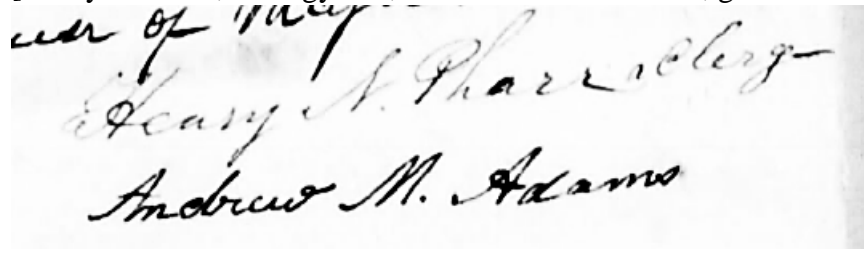 of
Henry N. Pharr Clerg
Andrew M. Adams